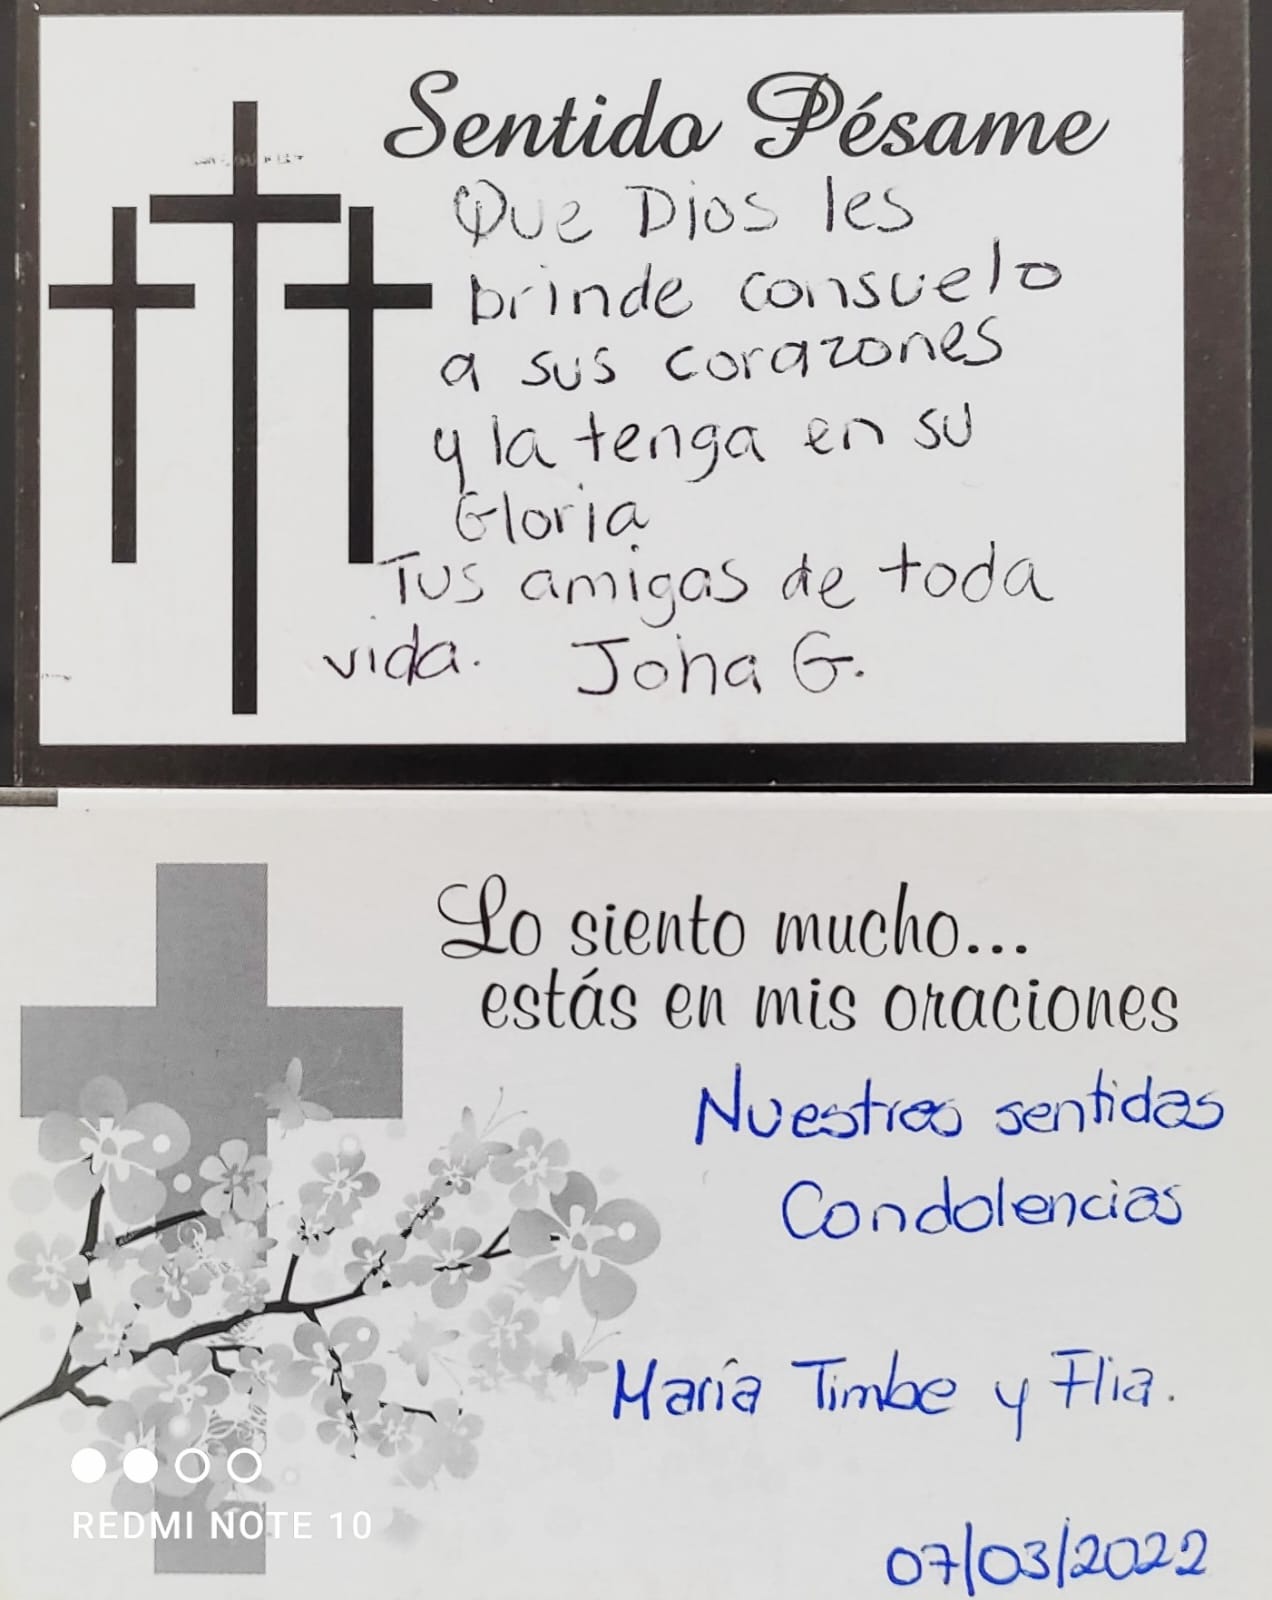 Sentido Pésame
Que Dios les
brinde consuelo
a sus corazones
y la tenga en su
Gloria
Tus amigas de toda
vida. Joha G.
Lo siento mucho...
estás en mis oraciones
Nuestras sentidas
Condolencias
María Timbe y Flia.
07/03/2022
REDMI NOTE 10